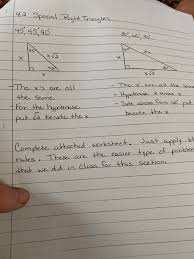 9.2 Special Right Triangles
45, 45, 90
30, 60, 90
45
x
x√2
x
- The x's are all the same
- For the hypotenuse put √2 beside the x
- The x' are all the same
- Hypotenuse 2 times x
- Side across from 60 put beside the x
Complete attached worksheet. Just apply the
rules. These are the easier type of problem
that we did in class for this section.